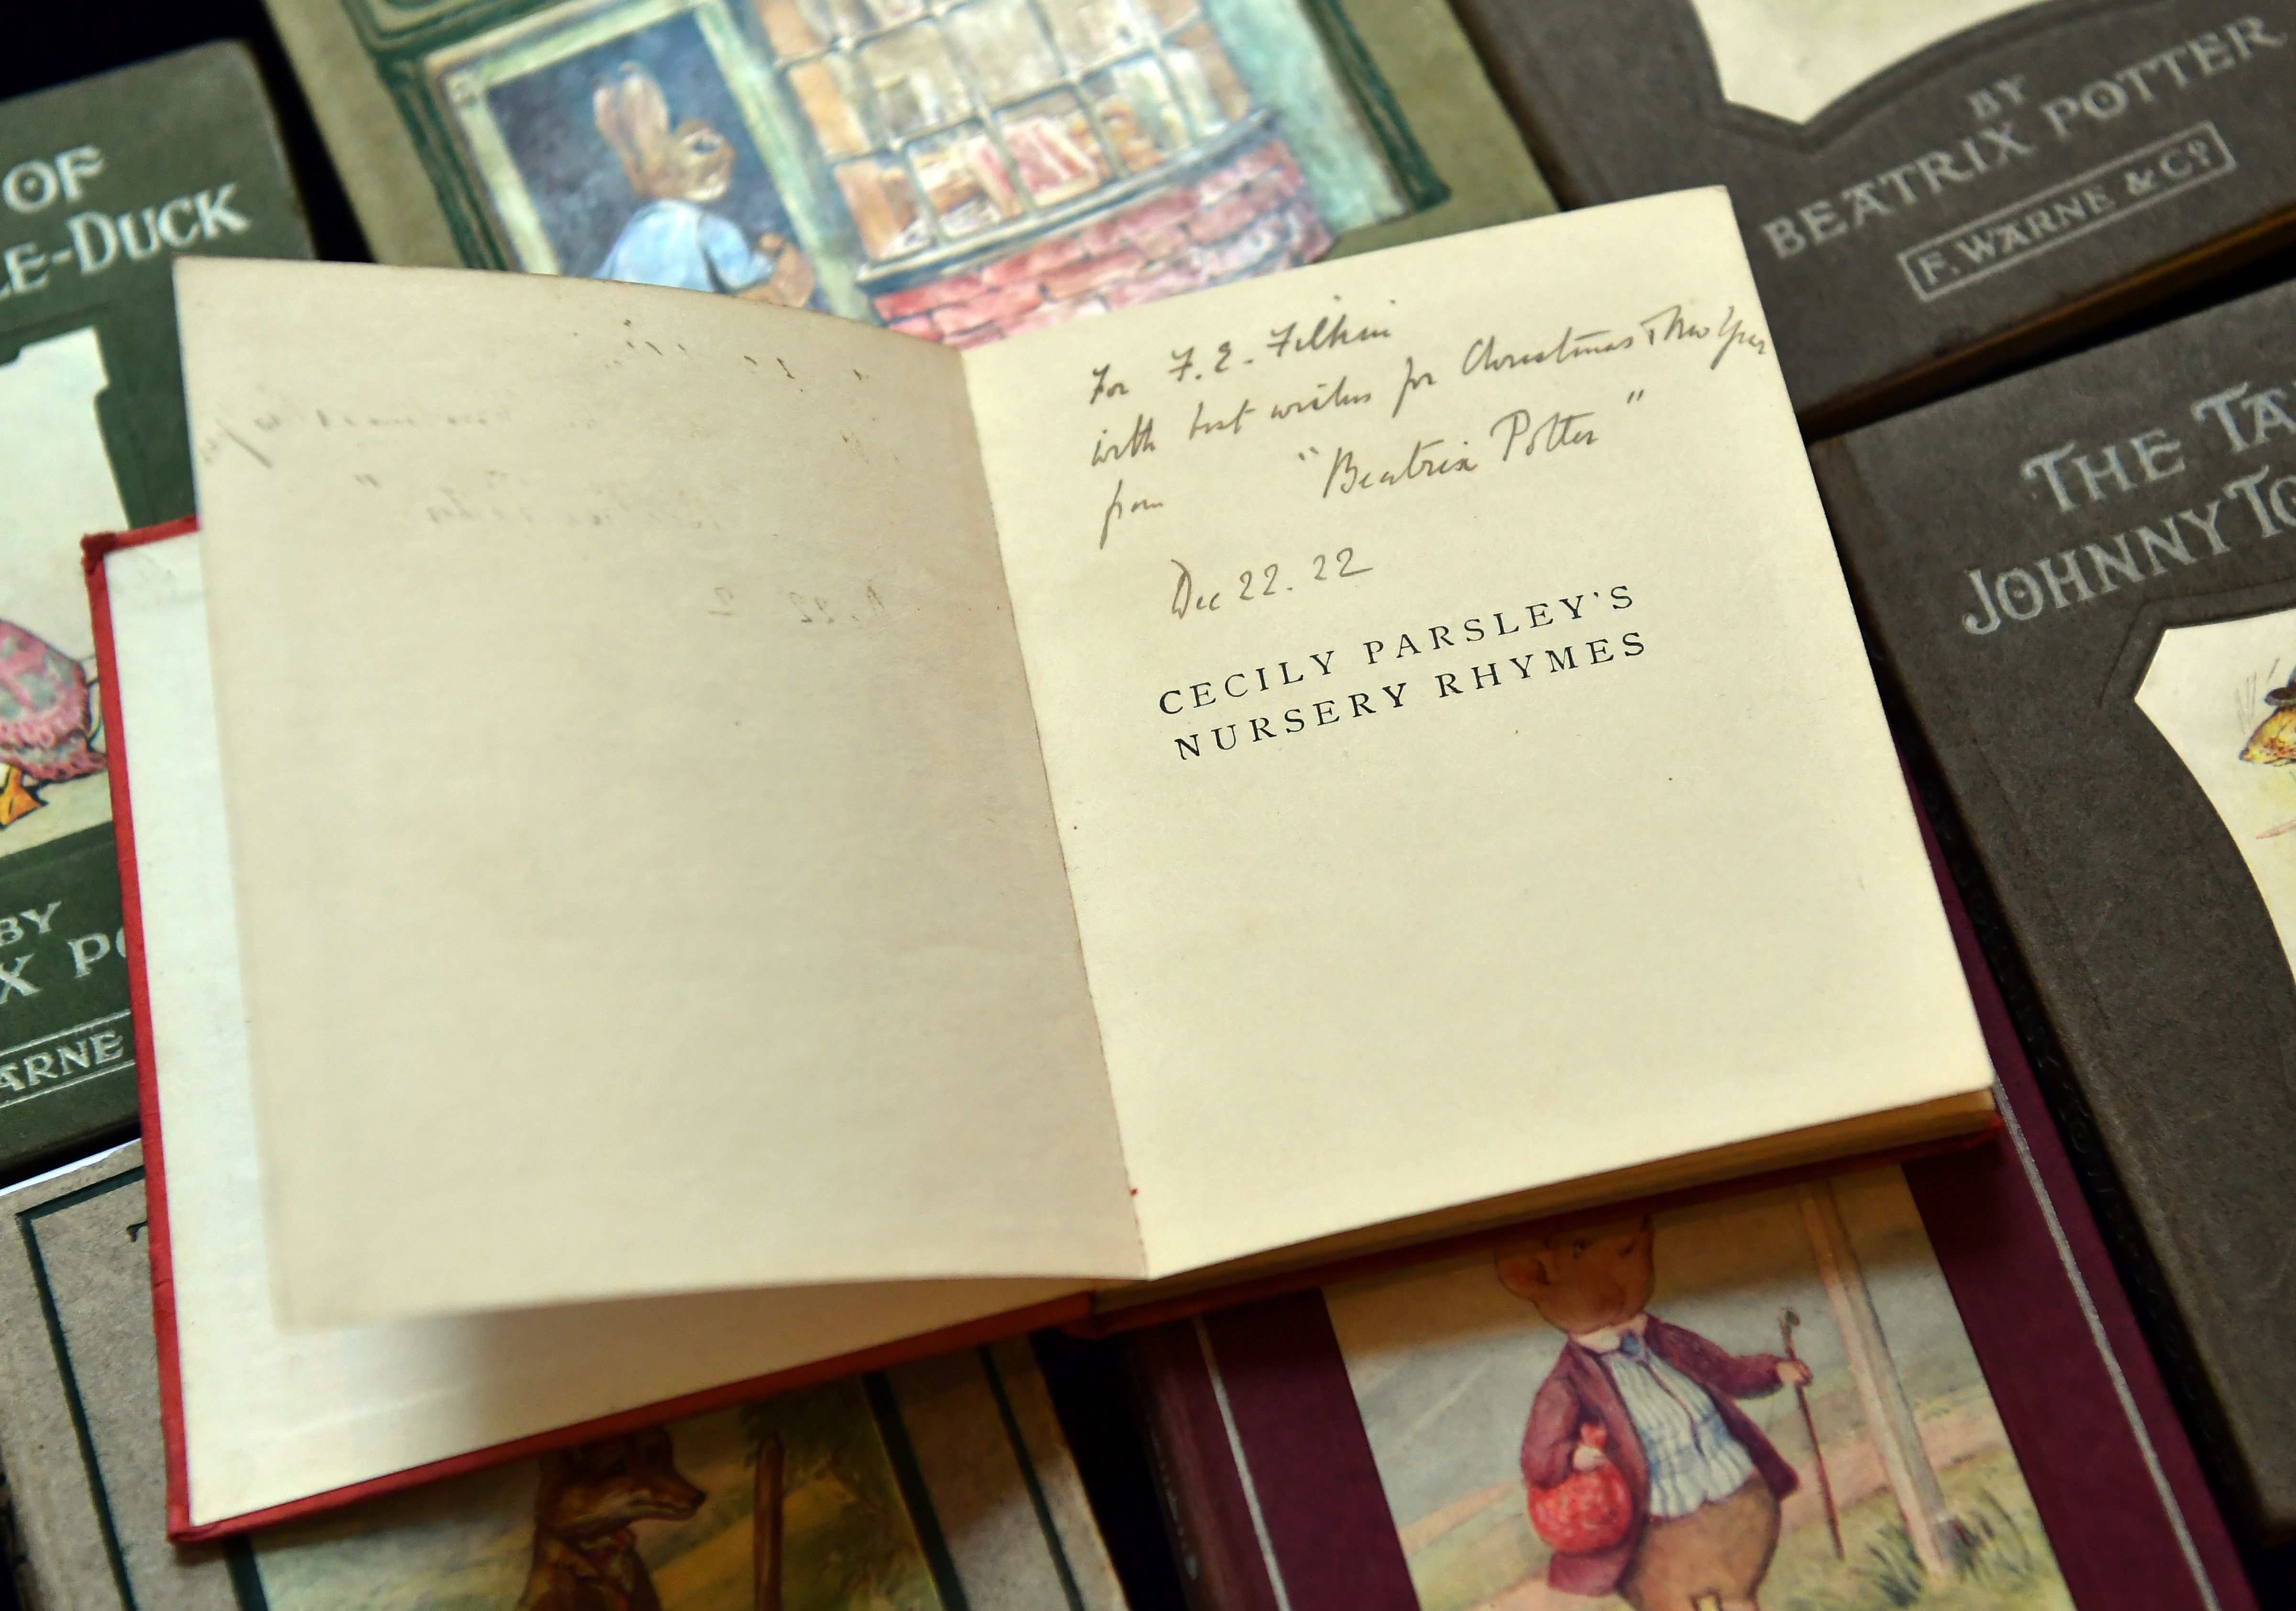 OF
LE-DUCK
BY
X PO
ARNE
BY
BEATRIX POTTER
F. WARNE & Cº
THE TA
JOHNNY TO
For F. E. Filkin
with best wishes for Christmas & New Year
from "Beatrix Potter"
Dec 22. 22
CECILY PARSLEY'S
NURSERY RHYMES